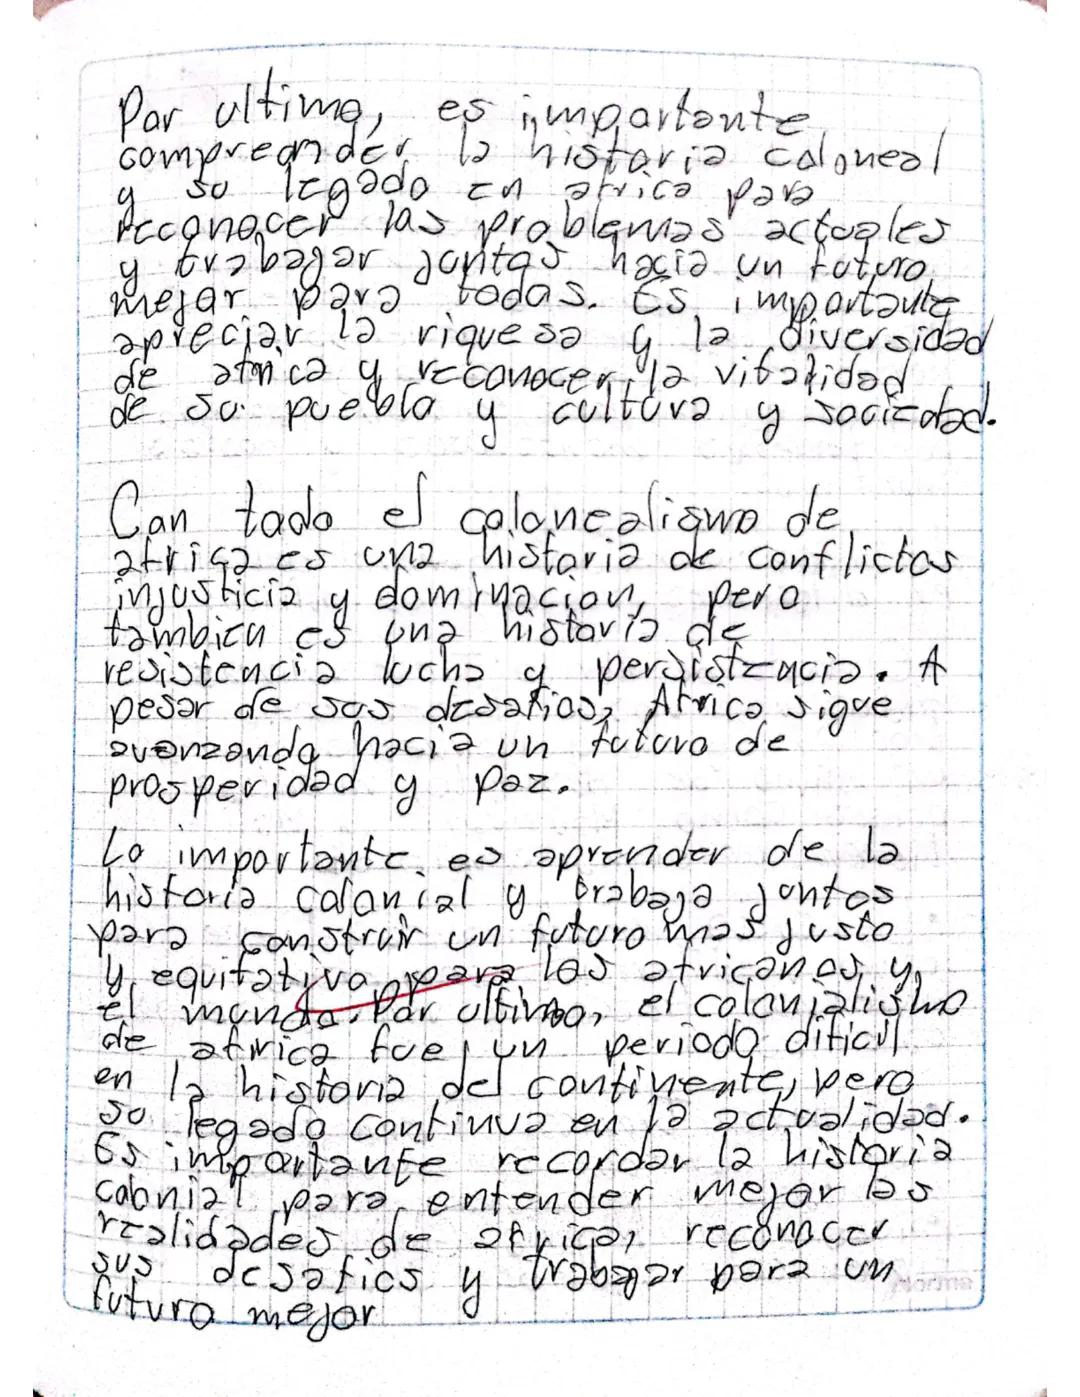 Por ultimo, es importante
compreander la historia coloneal
y su legado en africa para
reconocer los problemas actuales
y trabagar juntos hacia un futuro
mejor para todos. Es importante
apreciar la riquesa y la diversidad
de africa y reconocer la vitalidad
de su pueblo y cultura y sociedad.
Con todo el colonealismo de
africa es una historia de conflictos
injusticia y dominacion, pero
tambien es una historia de
resistencia lucha y persistencia. A
pesar de sus desafios, Africa sigue
avanzando hacia un futuro de
prosperidad y paz.
Lo importante es aprender de la
historia colonial y trabaja juntos
para construir un futuro mas justo
y equitativo para los africanos y
el mundo. Por ultimo, el colonialismo
de africa fue un periodo dificil
en la historia del continente, pero
su legado continua en la actualidad.
Es importante recordar la historia
colonial para entender mejor las
realidades de africa, reconocer
sus desafios y trabagar para un
futuro mejor